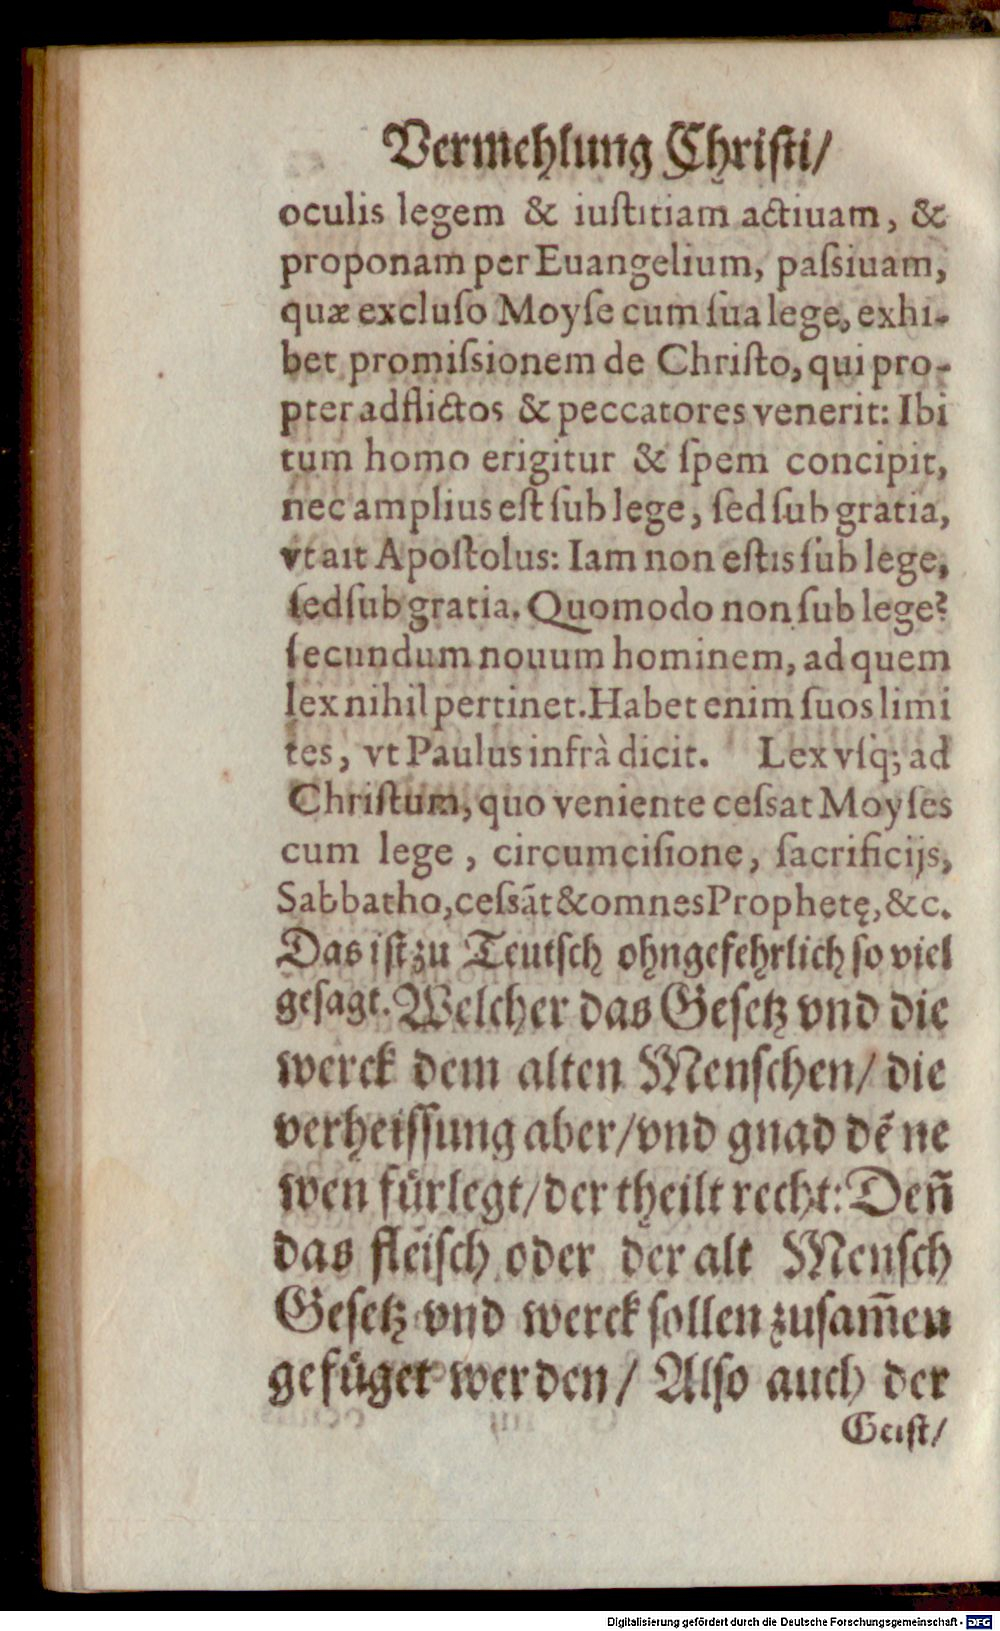 Vermehlung Christi/
oculis legem & iuſtitiam actiuam, &
proponam per Euangelium, paſsiuam,
quæ excluſo Moyſe cum ſua lege, exhi-
bet promiſsionem de Chriſto, qui pro-
pter adflictos & peccatores venerit: Ibi
tum homo erigitur & ſpem concipit,
nec amplius eſt ſub lege, ſed ſub gratia,
vt ait Apoſtolus: Iam non eſtis ſub lege,
ſed ſub gratia. Quomodo non ſub lege?
ſecundum nouum hominem, ad quem
lex nihil pertinet. Habet enim ſuos limi
tes, vt Paulus infrà dicit. Lex vſq; ad
Chriſtum, quo veniente ceſsat Moyſes
cum lege, circumciſione, ſacrificijs,
Sabbatho, ceſsāt & omnes Prophetę, &c.
Das iſt zu Teutſch ohngefehrlich ſo viel
geſagt. Welcher das Geſetz vnd die
werck dem alten Menſchen/ die
verheiſſung aber/ vnd gnad dē ne
wen fuͤrlegt/ der theilt recht: Deñ
das fleiſch oder der alt Menſch
Geſetz vnd werck ſollen zuſam̄en
gefuͤget werden/ Alſo auch der
Geiſt/
Digitalisierung gefördert durch die Deutsche Forschungsgemeinschaft - DFG